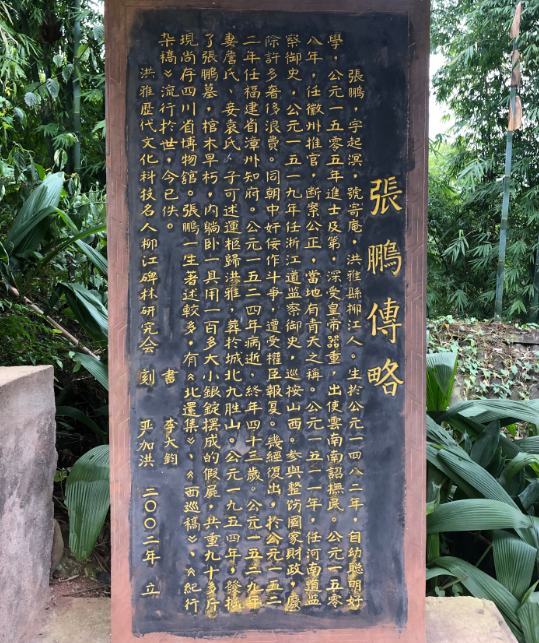 張鵬傳略
張鵬，字起溟，號寄庵，洪雅縣柳江人。生於公元一四八二年，自幼聰明好
學，公元一五零五年進士及第，深受皇帝器重，出使雲南南詔撫民。公元一五零
八年，任徽州推官，斷案公正，當地有青天之稱。公元一五一一年，任河南道監
察御史，公元一五一九年任浙江道監察御史，巡按山西。參與整飭國家財政，廢
除許多奢侈浪費。同朝中奸佞作斗爭，遭受權臣報夏。幾經復出，於公元一五二
二年任福建省漳州知府。公元一五二四年病逝，終年四十三歲。公元一五二九年
妻詹氏、妾袁氏、子可述運柩歸洪雅，葬於城北九胜山。公元一九五四年，發掘
了張鵬墓，棺木早朽，内躺卧一具用一百多大小銀錠擺成的假屍，共重九十多斤
現尚存四川省博物館。張鵬一生著述較多，有《北還集》、《西巡稿》、《紀行
杂稿》流行於世，今已佚。
洪雅歷代文化科技名人柳江碑林研究会
書 李大鈞
刻 严加洪
二〇〇二年 立